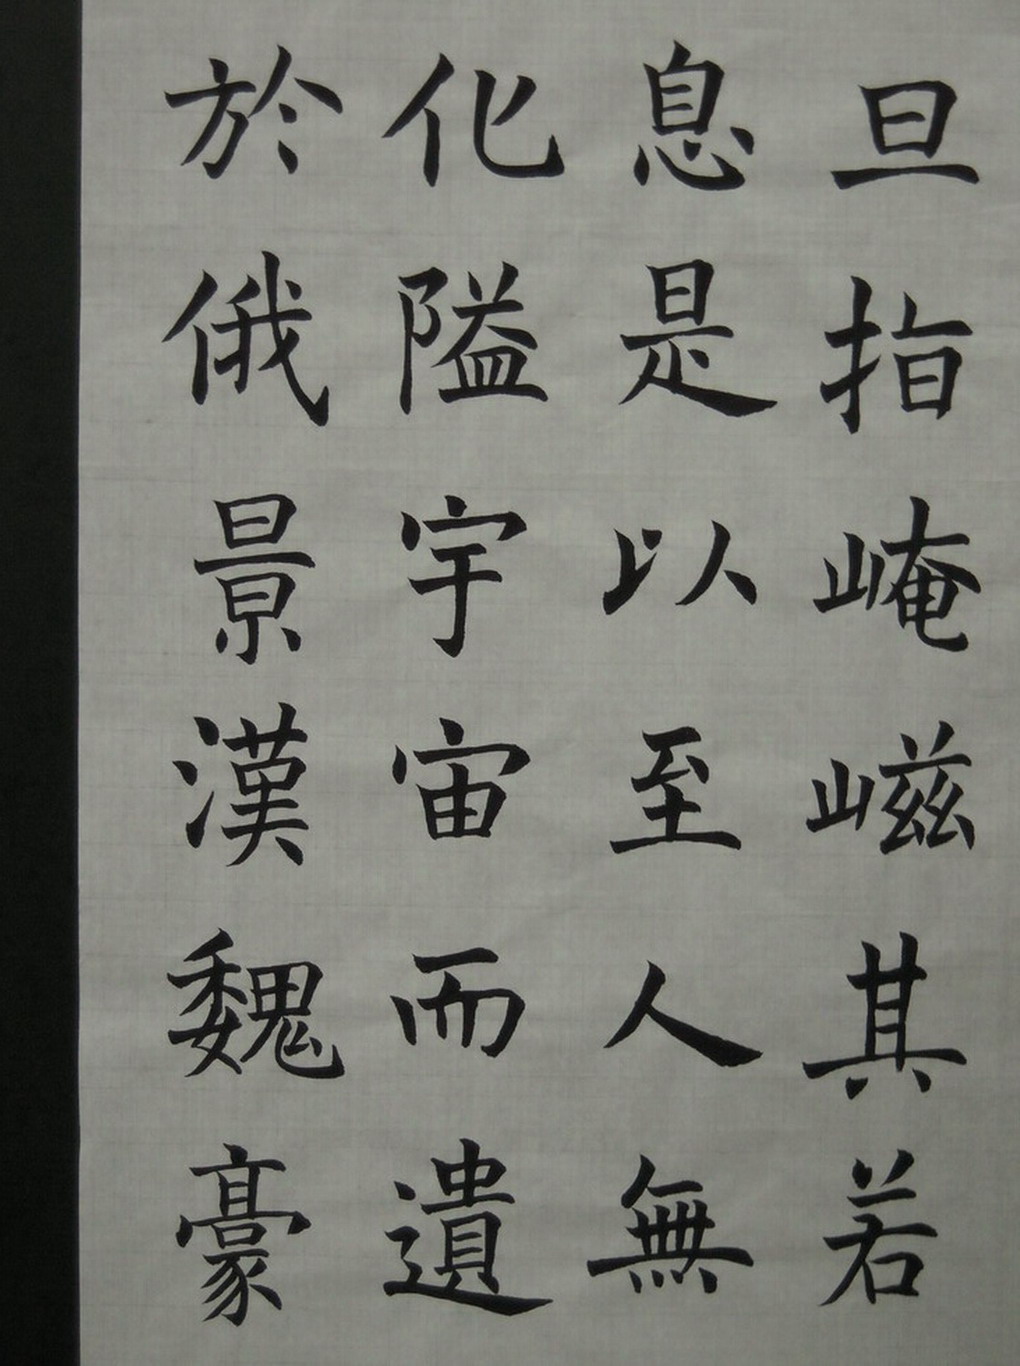 旦指崦嵫其若
息是以至人無
化隘宇宙而遺
於俄景漢魏豪